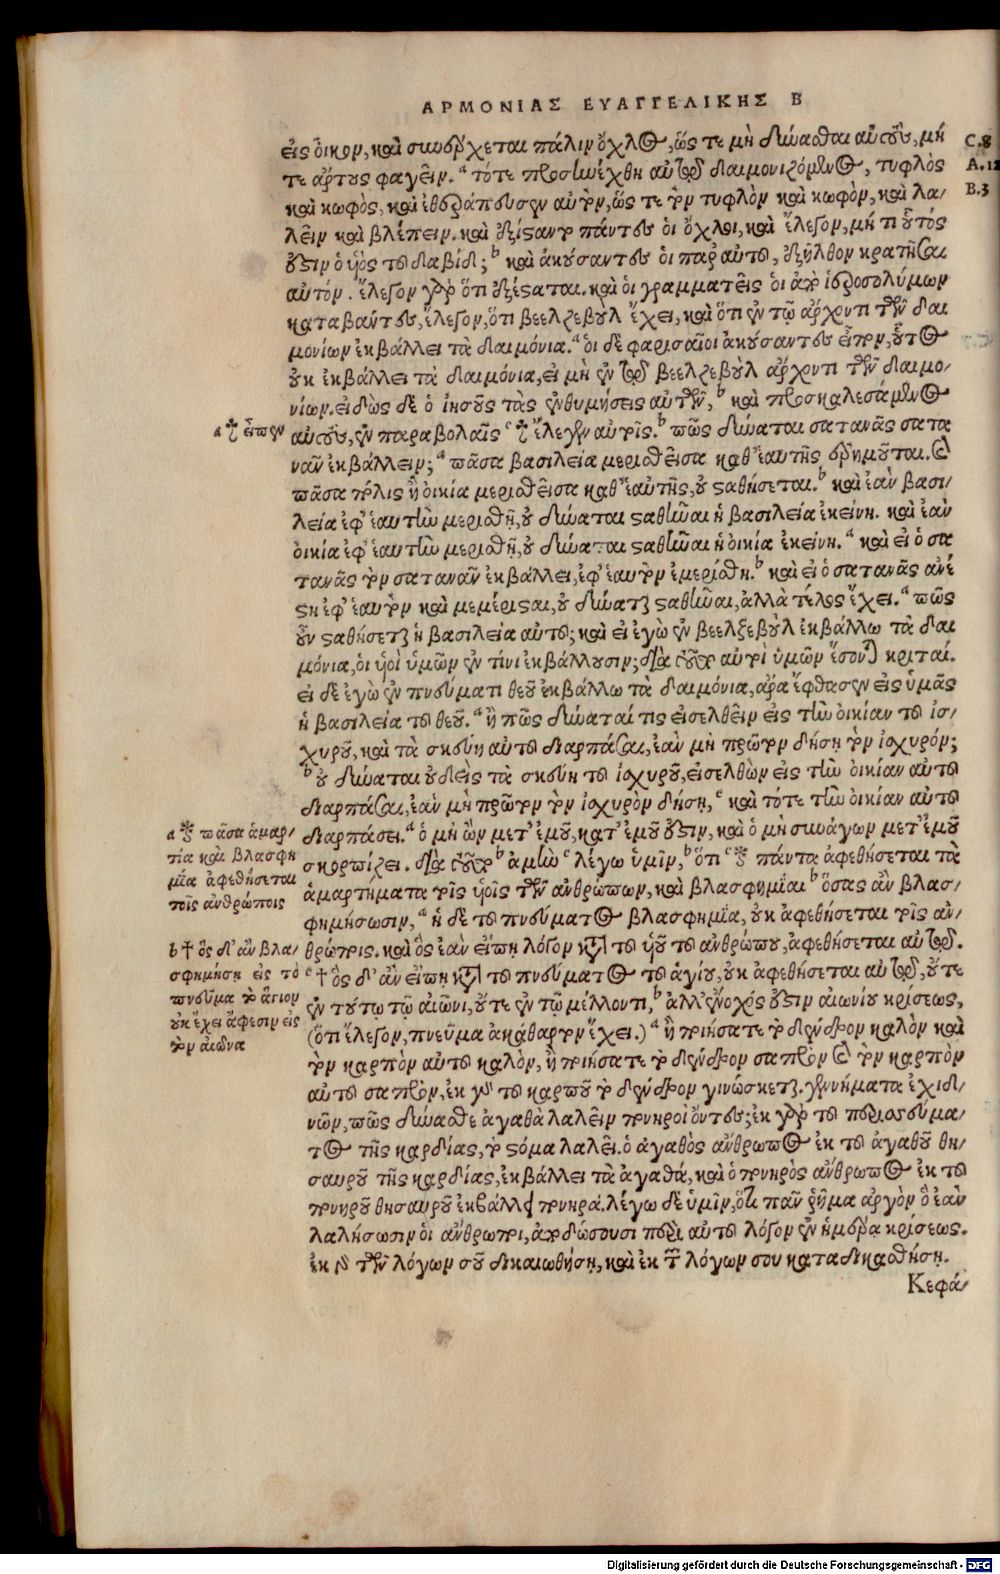 ΑΡΜΟΝΙΑΣ ΕΥΑΓΓΕΛΙΚΗΣ Β
εἰς οἶκον, καὶ συνέρχεται πάλιν ὄχλος, ὥς τε μὴ δύνασθαι αὐτοὺς, μή
C.8
τε ἄρτους φαγεῖν. a τότε προσηνέχθη αὐτῷ δαιμονιζόμενος, τυφλὸς
A.12
καὶ κωφὸς, καὶ ἐθεράπευσεν αὐτὸν, ὥς τε τὸν τυφλὸν καὶ κωφὸν, καὶ λα/
B.3
λεῖν καὶ βλέπειν. καὶ ἐξίσαντο πάντες οἱ ὄχλοι, καὶ ἔλεγον, μή τι οὗτός
ἐστιν ὁ υἱὸς τοῦ δαβίδ; b καὶ ἀκούσαντες οἱ παρ' αὐτοῦ, ἐξῆλθον κρατῆσαι
αὐτόν. ἔλεγον γὰρ ὅτι ἐξέσται. καὶ οἱ γραμματεῖς οἱ ἀπὸ ἱεροσολύμων
καταβάντες, ἔλεγον, ὅτι βεελζεβοὺλ ἔχει, καὶ ὅτι ἐν τῷ ἄρχοντι τῶν δαι
μονίων ἐκβάλλει τὰ δαιμόνια. a οἱ δὲ φαρισαῖοι ἀκούσαντες εἶπον, οὗτος
οὐκ ἐκβάλλει τὰ δαιμόνια, εἰ μὴ ἐν τῷ βεελζεβοὺλ ἄρχοντι τῶν δαιμο/
νίων. εἰδὼς δὲ ὁ ἰησοῦς τὰς ἐνθυμήσεις αὐτῶν, b καὶ προσκαλεσάμενος
a ☨ εἶπεν
αὐτοὺς, ἐν παραβολαῖς c ☨ ἔλεγεν αὐτοῖς. b πῶς δύναται σατανᾶς σατα
νᾶν ἐκβάλλειν; a πᾶσα βασιλεία μερισθεῖσα καθ' ἑαυτῆς ἐρημοῦται. καὶ
πᾶσα πόλις ἢ οἰκία μερισθεῖσα καθ' ἑαυτῆς, οὐ σταθήσεται. b καὶ ἐὰν βασι/
λεία ἐφ' ἑαυτὴν μερισθῇ, οὐ δύναται σταθῆναι ἡ βασιλεία ἐκείνη. καὶ ἐὰν
οἰκία ἐφ' ἑαυτὴν μερισθῇ, οὐ δύναται σταθῆναι ἡ οἰκία ἐκείνη. a καὶ εἰ ὁ σα
τανᾶς τὸν σατανᾶν ἐκβάλλει, ἐφ' ἑαυτὸν ἐμερίσθη. b καὶ εἰ ὁ σατανᾶς ἀνέ
στη ἐφ' ἑαυτὸν καὶ μεμέρισται, οὐ δύναται σταθῆναι, ἀλλὰ τέλος ἔχει. a πῶς
οὖν σταθήσεται ἡ βασιλεία αὐτοῦ; καὶ εἰ ἐγὼ ἐν βεελζεβοὺλ ἐκβάλλω τὰ δαι
μόνια, οἱ υἱοὶ ὑμῶν ἐν τίνι ἐκβάλλουσιν; διὰ τοῦτο αὐτοὶ ὑμῶν ἔσονται κριταί.
εἰ δὲ ἐγὼ ἐν πνεύματι θεοῦ ἐκβάλλω τὰ δαιμόνια, ἄρα ἔφθασεν εἰς ὑμᾶς
ἡ βασιλεία τοῦ θεοῦ. a ἢ πῶς δύναταί τις εἰσελθεῖν εἰς τὴν οἰκίαν τοῦ ἰσ/
χυροῦ, καὶ τὰ σκεύη αὐτοῦ διαρπάσαι, ἐὰν μὴ πρῶτον δήσῃ τὸν ἰσχυρόν;
b οὐ δύναται οὐδεὶς τὰ σκεύη τοῦ ἰσχυροῦ, εἰσελθὼν εἰς τὴν οἰκίαν αὐτοῦ
διαρπάσαι, ἐὰν μὴ πρῶτον τὸν ἰσχυρὸν δήσῃ, c καὶ τότε τὴν οἰκίαν αὐτοῦ
διαρπάσει. a ὁ μὴ ὢν μετ' ἐμοῦ, κατ' ἐμοῦ ἐστιν, καὶ ὁ μὴ συνάγων μετ' ἐμοῦ
σκορπίζει. διὰ τοῦτο b ἀμὴν c λέγω ὑμῖν, b ὅτι c ☧ πάντα ἀφεθήσεται τὰ
ἁμαρτήματα τοῖς υἱοῖς τῶν ἀνθρώπων, καὶ βλασφημίαι b ὅσας ἂν βλασ/
φημήσωσιν, a ἡ δὲ τοῦ πνεύματος βλασφημία, οὐκ ἀφεθήσεται τοῖς ἀν/
θρώποις. καὶ ὃς ἐὰν εἴπῃ λόγον κατὰ τοῦ υἱοῦ τοῦ ἀνθρώπου, ἀφεθήσεται αὐτῷ.
c † ὃς δ' ἂν εἴπῃ κατὰ τοῦ πνεύματος τοῦ ἁγίου, οὐκ ἀφεθήσεται αὐτῷ, οὔτε
ἐν τούτῳ τῷ αἰῶνι, οὔτε ἐν τῷ μέλλοντι, b ἀλλ' ἔνοχός ἐστιν αἰωνίου κρίσεως,
(ὅτι ἔλεγον, πνεῦμα ἀκάθαρτον ἔχει.) a ἢ ποιήσατε τὸ δένδρον καλὸν καὶ
τὸν καρπὸν αὐτοῦ καλὸν, ἢ ποιήσατε τὸ δένδρον σαπρὸν καὶ τὸν καρπὸν
αὐτοῦ σαπρὸν, ἐκ γὰρ τοῦ καρποῦ τὸ δένδρον γινώσκεται. γεννήματα ἐχιδ/
νῶν, πῶς δύνασθε ἀγαθὰ λαλεῖν πονηροὶ ὄντες; ἐκ γὰρ τοῦ περισσεύμα/
τος τῆς καρδίας, τὸ στόμα λαλεῖ. ὁ ἀγαθὸς ἄνθρωπος ἐκ τοῦ ἀγαθοῦ θη/
σαυροῦ τῆς καρδίας, ἐκβάλλει τὰ ἀγαθά, καὶ ὁ πονηρὸς ἄνθρωπος ἐκ τοῦ
πονηροῦ θησαυροῦ ἐκβάλλει πονηρά. λέγω δὲ ὑμῖν, ὅτι πᾶν ῥῆμα ἀργὸν ὃ ἐὰν
λαλήσωσιν οἱ ἄνθρωποι, ἀποδώσουσι περὶ αὐτοῦ λόγον ἐν ἡμέρᾳ κρίσεως.
ἐκ γὰρ τῶν λόγων σοῦ δικαιωθήσῃ, καὶ ἐκ τῶν λόγων σου καταδικασθήσῃ.
Κεφά/
a ☧ πᾶσα ἁμαρ/
τία καὶ βλασφη
μία ἀφεθήσεται
τοῖς ἀνθρώποις
b † ὃς δ' ἂν βλα/
σφημήσῃ εἰς τὸ
πνεῦμα τὸ ἅγιον
οὐκ ἔχει ἄφεσιν εἰς
τὸν αἰῶνα
Digitalisierung gefördert durch die Deutsche Forschungsgemeinschaft - DFG